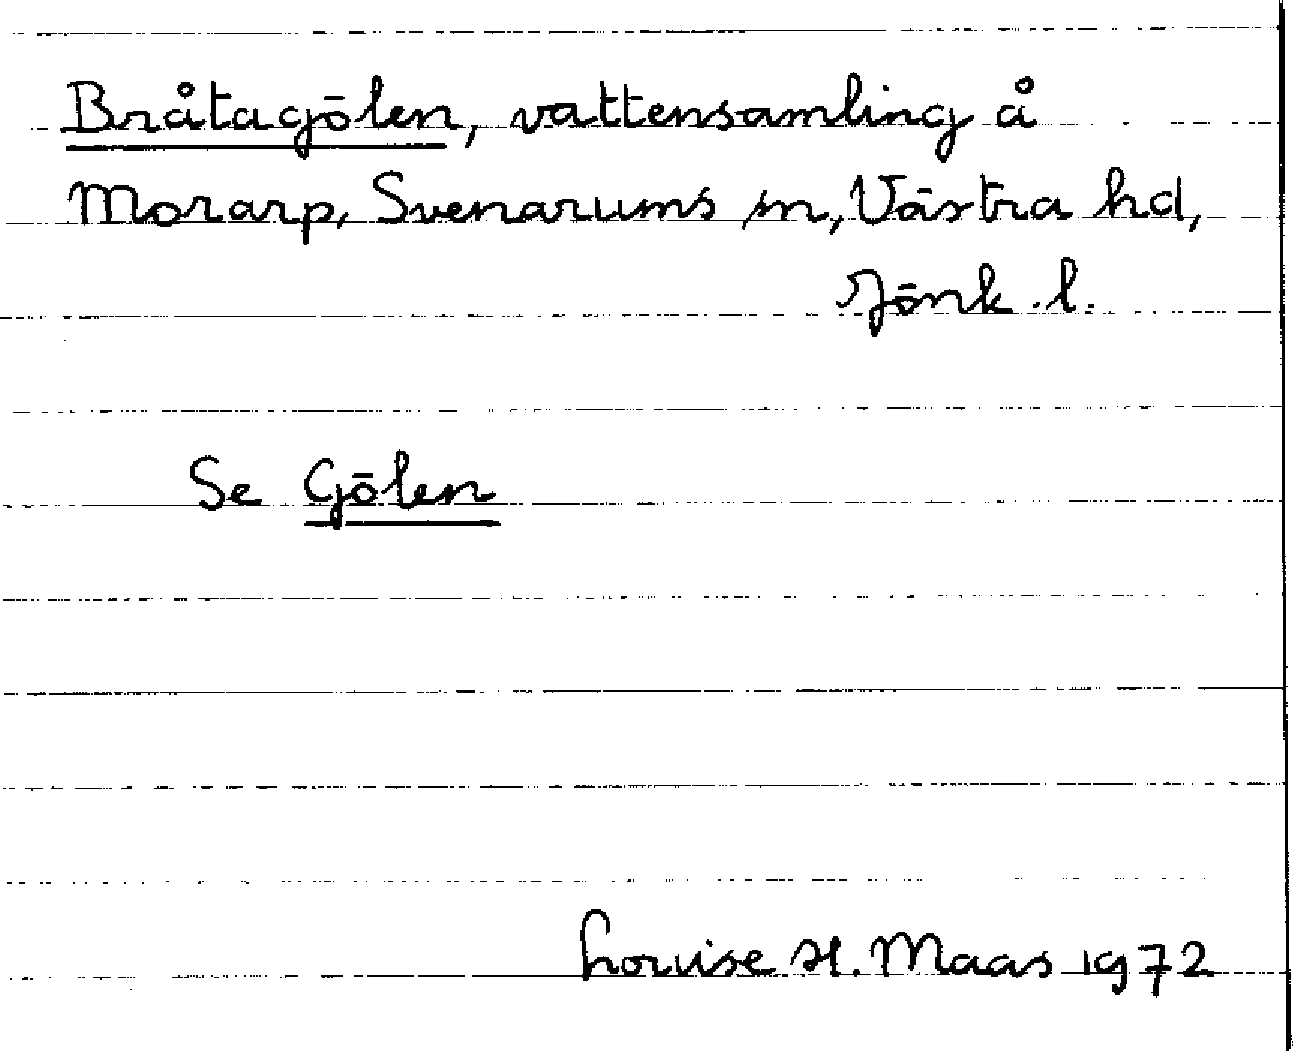 Bråtagölen, vattensamling å
Morarp, Svenarums sn, Västra hd,
Jönk. l.
Se Gölen
Louise H. Maas 1972